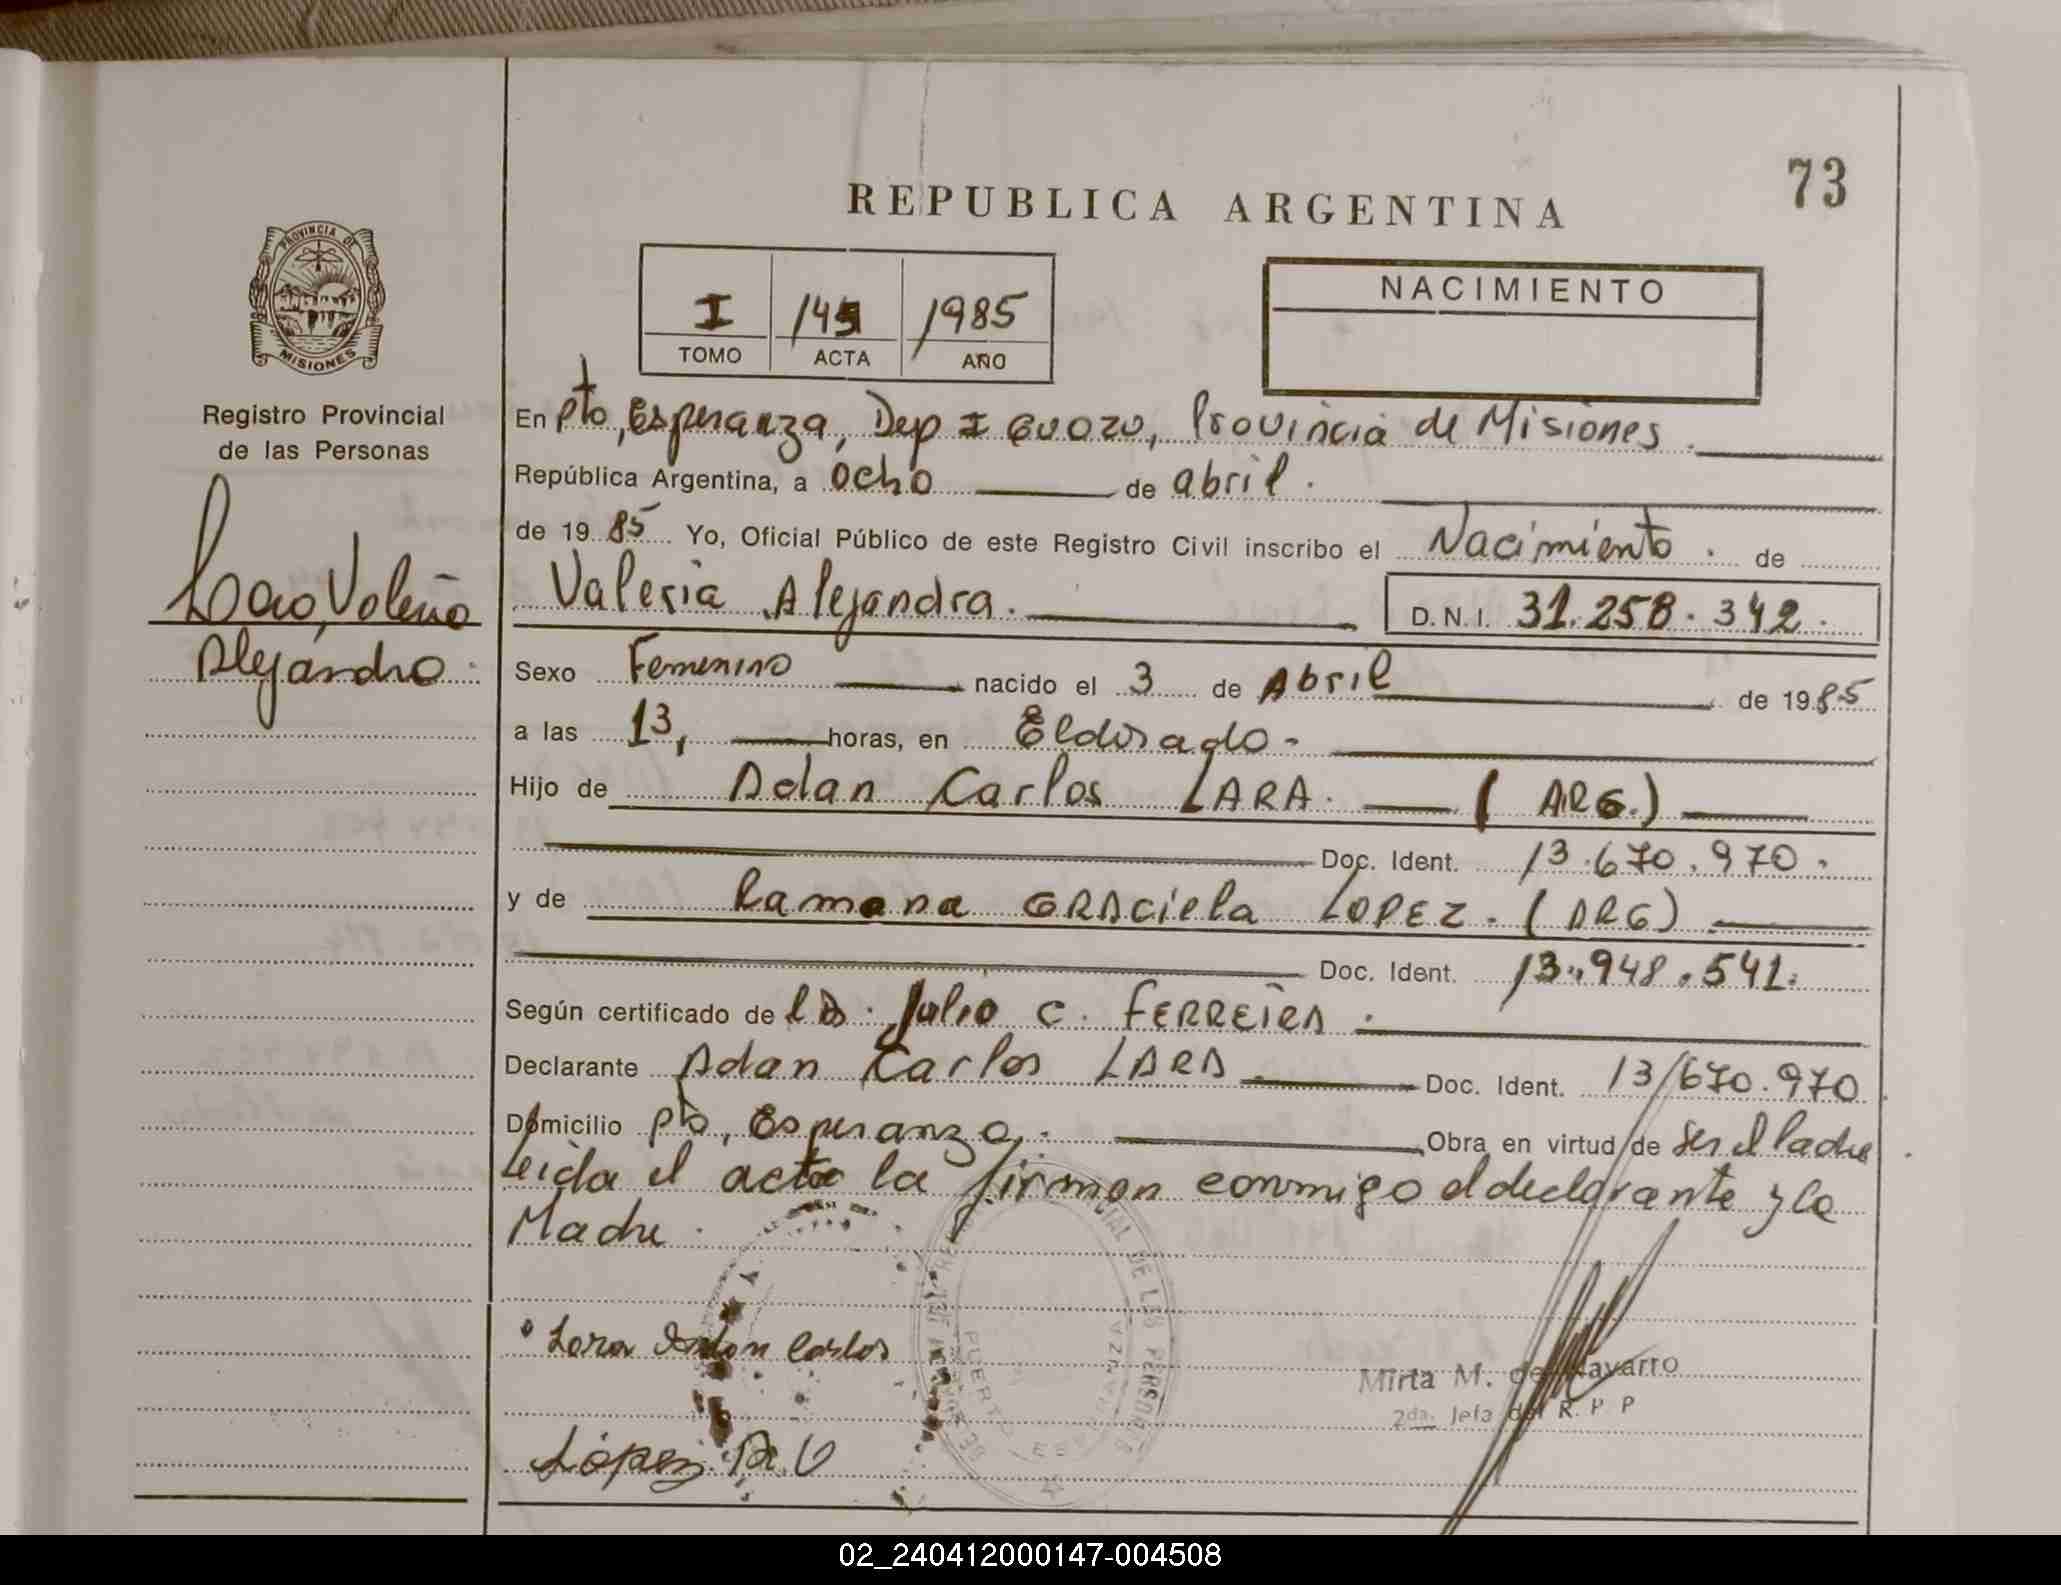 73
REPUBLICA ARGENTINA
PROVINCIA DE
MISIONES
I 145 1985
TOMO ACTA AÑO
NACIMIENTO
Registro Provincial
de las Personas
Lara, Valeria
Alejandra.
En Pto, Esperanza, Dep I GUAZU, Provincia de Misiones.
República Argentina, a ocho de abril.
de 19 85 Yo, Oficial Público de este Registro Civil inscribo el Nacimiento. de
Valeria Alejandra. D.N.I. 31.258.342.
Sexo Femenino nacido el 3 de Abril de 19 85
a las 13, horas, en Eldorado-
Hijo de Adan Carlos LARA. (ARG.)
Doc. Ident. 13.670.970.
y de Ramona GRACiela LOPEZ. (ARG)
Doc. Ident. 13.948.541.
Según certificado de Julio C. FERREIRA.
Declarante Adan Carlos LARA Doc. Ident. 13/670.970
Domicilio Pto, Esperanza. Obra en virtud de ser el Padre
Leida el acta la firman conmigo el declarante y la
Madre.
REGISTRO PROVINCIAL DE LAS PERSONAS
PUERTO ESPERANZA
Lara Adan Carlos
Mirta M. de Navarro
2da. Jefa del R. P P
López R. G
02_240412000147-004508